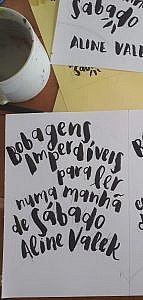 Sábado
ALINE VALEK
Bobagens
Imperdíveis
para ler
numa manhã
de Sábado
Aline Valek